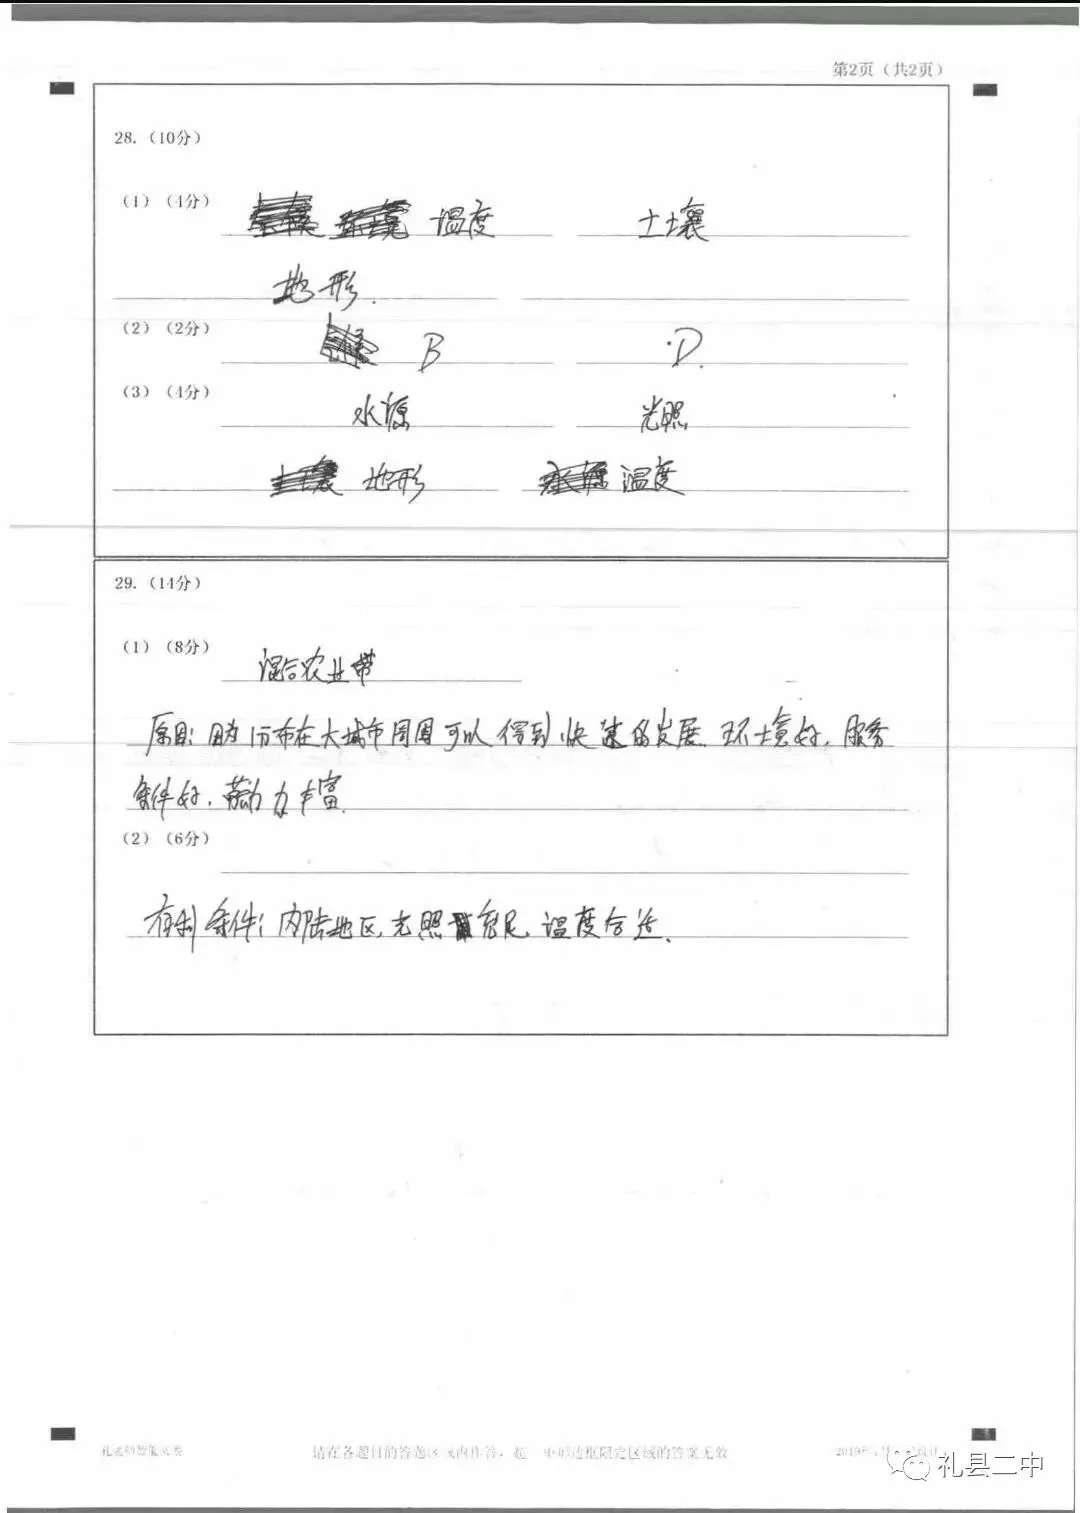 第2页（共2页）
28.（10分）
（1）（4分） 温度 土壤
地形.
（2）（2分） B D.
（3）（4分） 水源 光照
地形 温度
29.（14分）
（1）（8分） 混合农业带
原因: 因为 分布在大城市周围可以 得到 快速的发展. 环境好, 服务
条件好, 劳动力丰富.
（2）（6分）
有利条件: 内陆地区, 光照充足, 温度合适.
请在各题目的答题区域内作答，超 矩形边框限定区域的答案无效
礼县二中